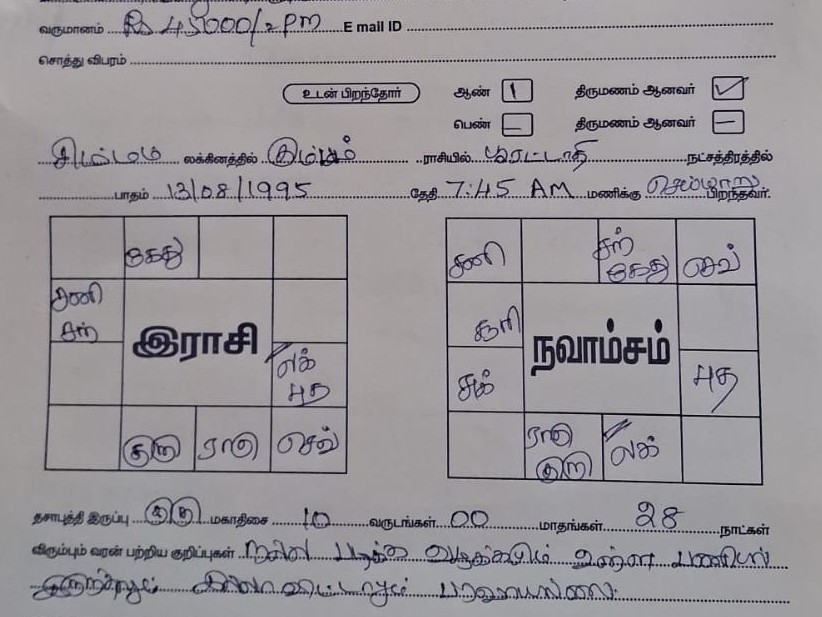 வருமானம் Rs 45000/-pm E mail ID
சொத்து விபரம்
உடன் பிறந்தோர் ஆண் 1 திருமணம் ஆனவர் ✓
பெண் – திருமணம் ஆனவர் –
சிம்மம் லக்கினத்தில் கும்பம் ராசியில் பூரட்டாதி நட்சத்திரத்தில்
பாதம் 13/08/1995 தேதி 7:45 AM மணிக்கு பிறந்தவர்.
கேது
சனி
சந்
இராசி
லக்
புத
குரு ராகு செவ்
சனி சந் கேது செவ்
சூரி
நவாம்சம்
சுக்
புத
ராகு குரு லக்
தசாபுத்தி இருப்பு குரு மகாதிசை 10 வருடங்கள் 00 மாதங்கள் 28 நாட்கள்
விரும்பும் வரன் பற்றிய குறிப்புகள் நல்ல படித்த உள்ள பணியில்
இல்லா விட்டாலும் பரவாயில்லை.